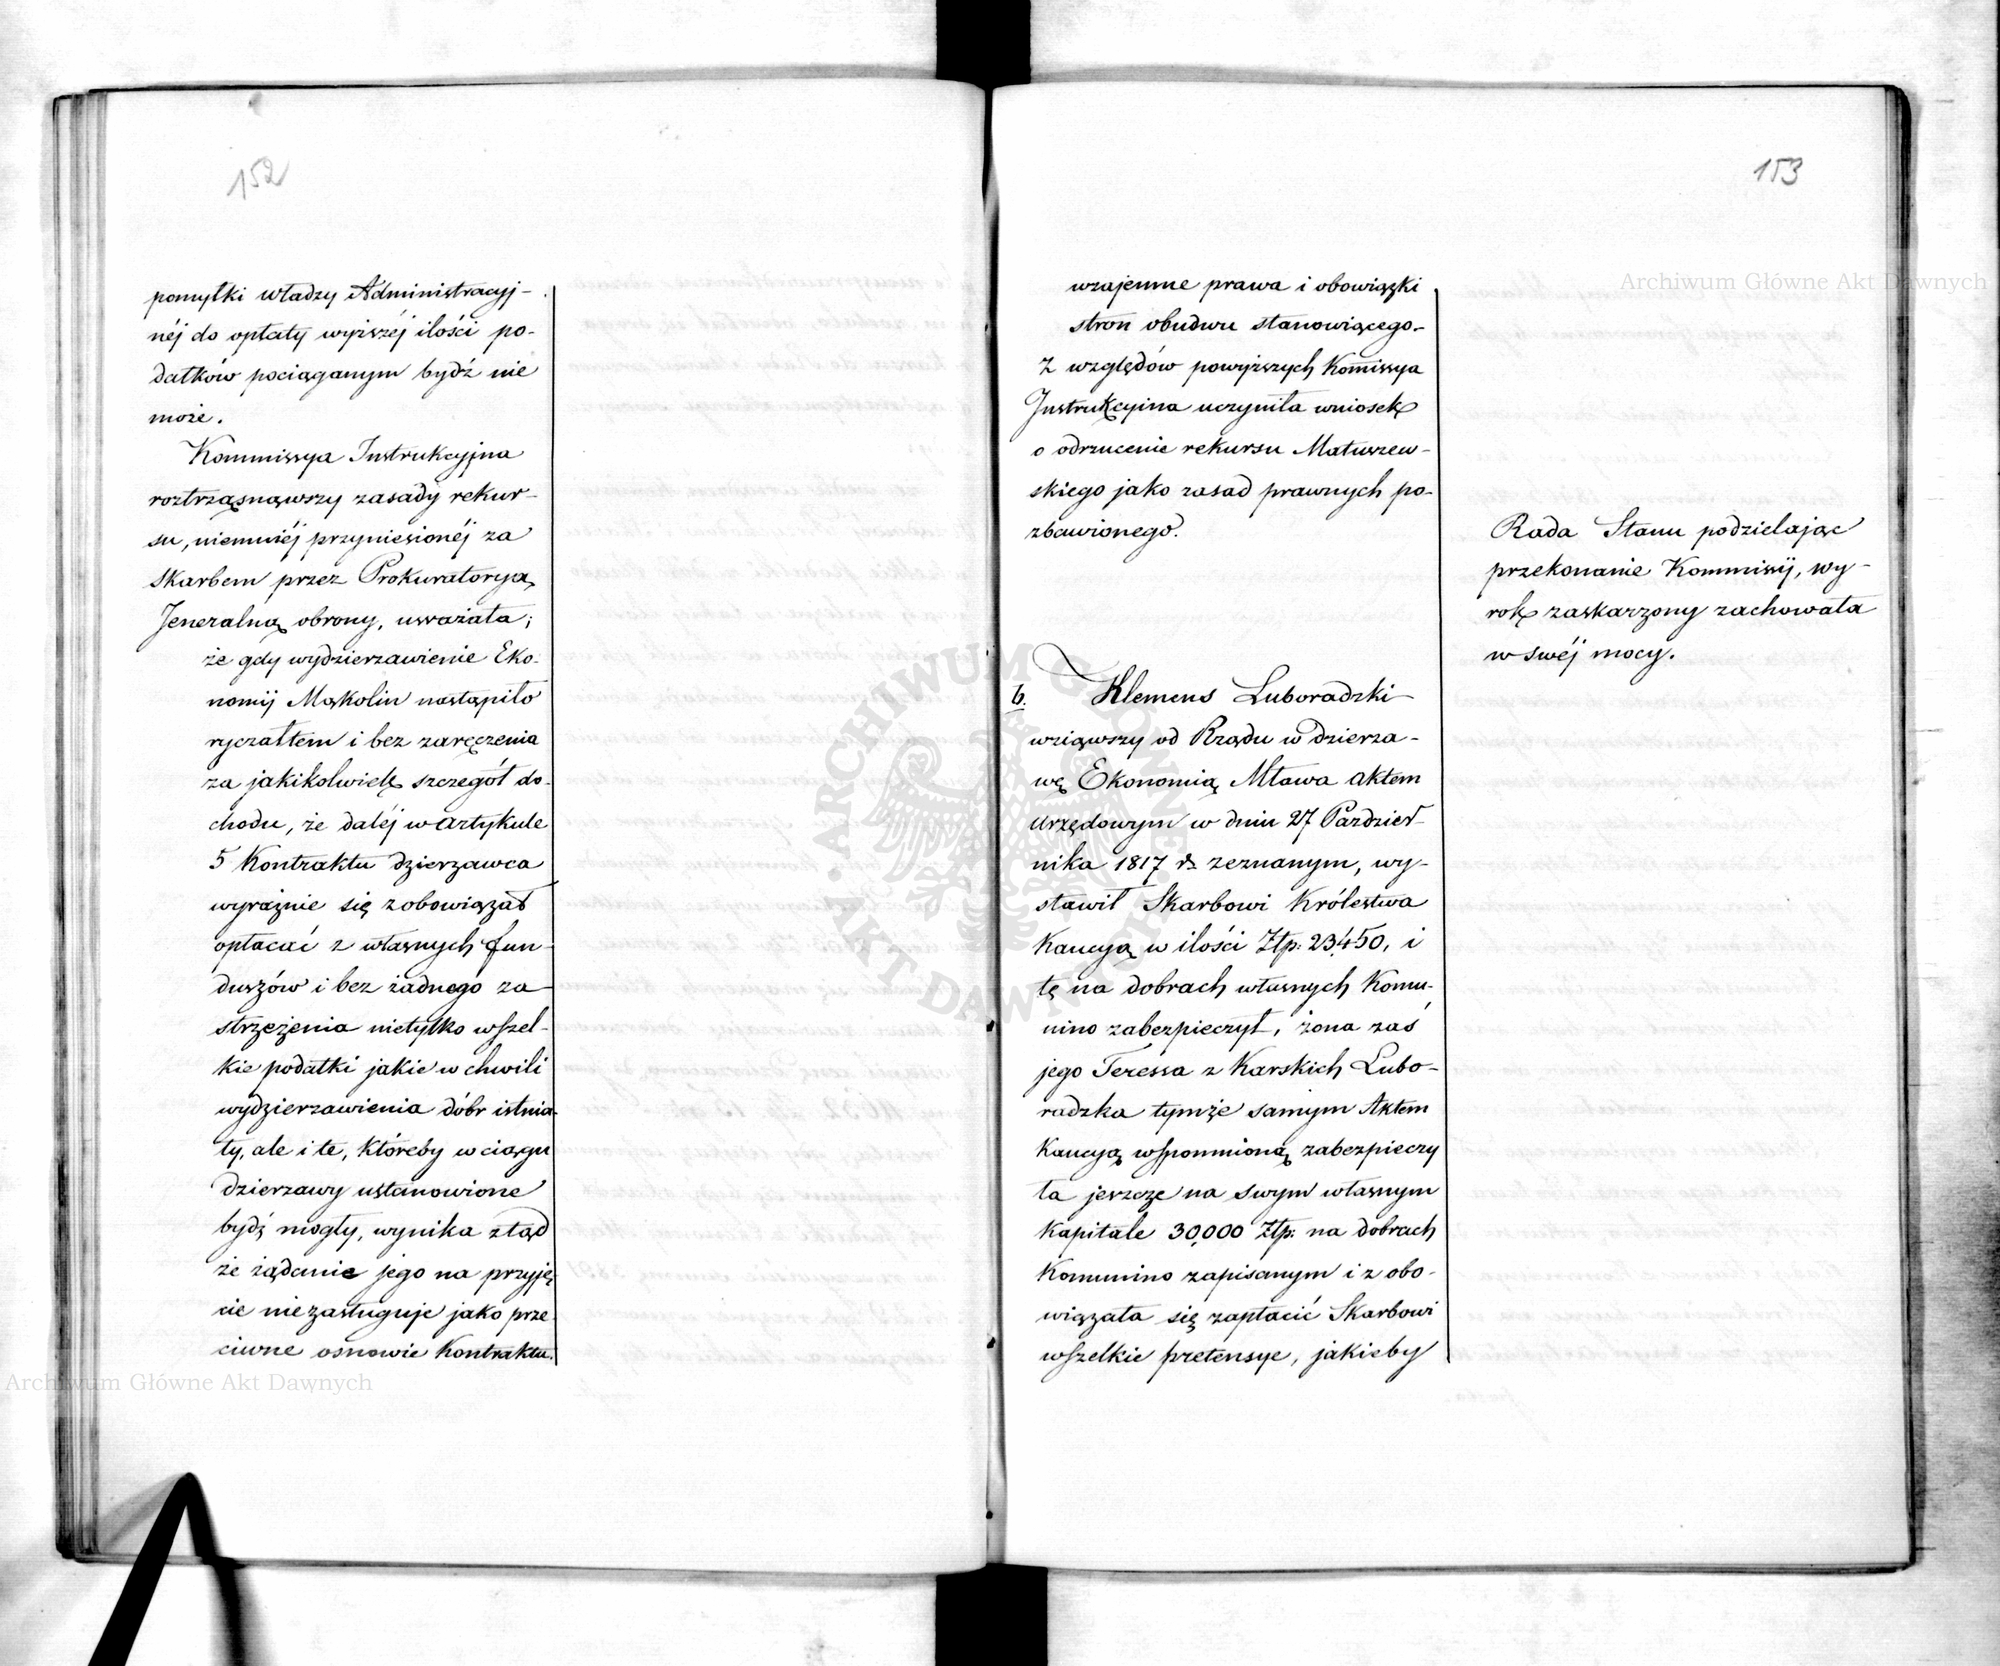 152
pomyłki władzy Administracyj-
néj do opłaty wyższéj ilości po-
datków pociąganym bydź nie
może.
Kommissya Instrukcyjna
roztrząsnąwszy zasady rekur-
su, niemniéj przyniesionéj za
Skarbem przez Prokuratoryą
Jeneralną obrony, uważała;
że gdy wydzierzawienie Eko-
nomij Mąkolin nastąpiło
ryczałtem i bez zaręczenia
za jakikolwiek szczegół do-
chodu, że daléj w artykule
5 Kontraktu dzierzawca
wyraźnie się zobowiązał
opłacać z własnych fun-
duszów i bez żadnego za-
strzeżenia nietylko wszel-
kie podatki jakie w chwili
wydzierzawienia dóbr istnia-
ły, ale i te, któreby w ciągu
dzierzawy ustanowione
bydź mogły, wynika ztąd
że żądanie jego na przyję-
cie niezasługuje jako prze-
ciwne osnowie Kontraktu.
153
wzajemne prawa i obowiązki
stron obudwu stanowiącego.-
Z względów powyższych Komissya
Instrukcyina uczyniła wniosek
o odrzucenie rekursu Matuszew-
skiego jako zasad prawnych po-
zbawionego.
Rada Stanu podzielając
przekonanie Kommissij, wy-
rok zaskarzony zachowała
w swéj mocy.
6. Klemens Luboradzki
wziąwszy od Rządu w dzierza-
wę Ekonomią Mława aktem
urzędowym w dniu 27 Pazdzier-
nika 1817 r. zeznanym, wy-
stawił Skarbowi Królestwa
Kaucyą w ilości Złp: 23,450, i
tę na dobrach własnych Komu-
nino zabezpieczył, żona zaś
jego Teressa z Karskich Lubo-
radzka tymże samym Aktem
Kaucyą wspomnioną zabezpieczy
ła jeszcze na swym własnym
Kapitale 30,000 Złp: na dobrach
Komunino zapisanym i z obo-
wiązała się zapłacić Skarbowi
wszelkie pretensye, jakieby
Archiwum Główne Akt Dawnych
Archiwum Główne Akt Dawnych
ARCHIWUM GŁÓWNE AKT DAWNYCH